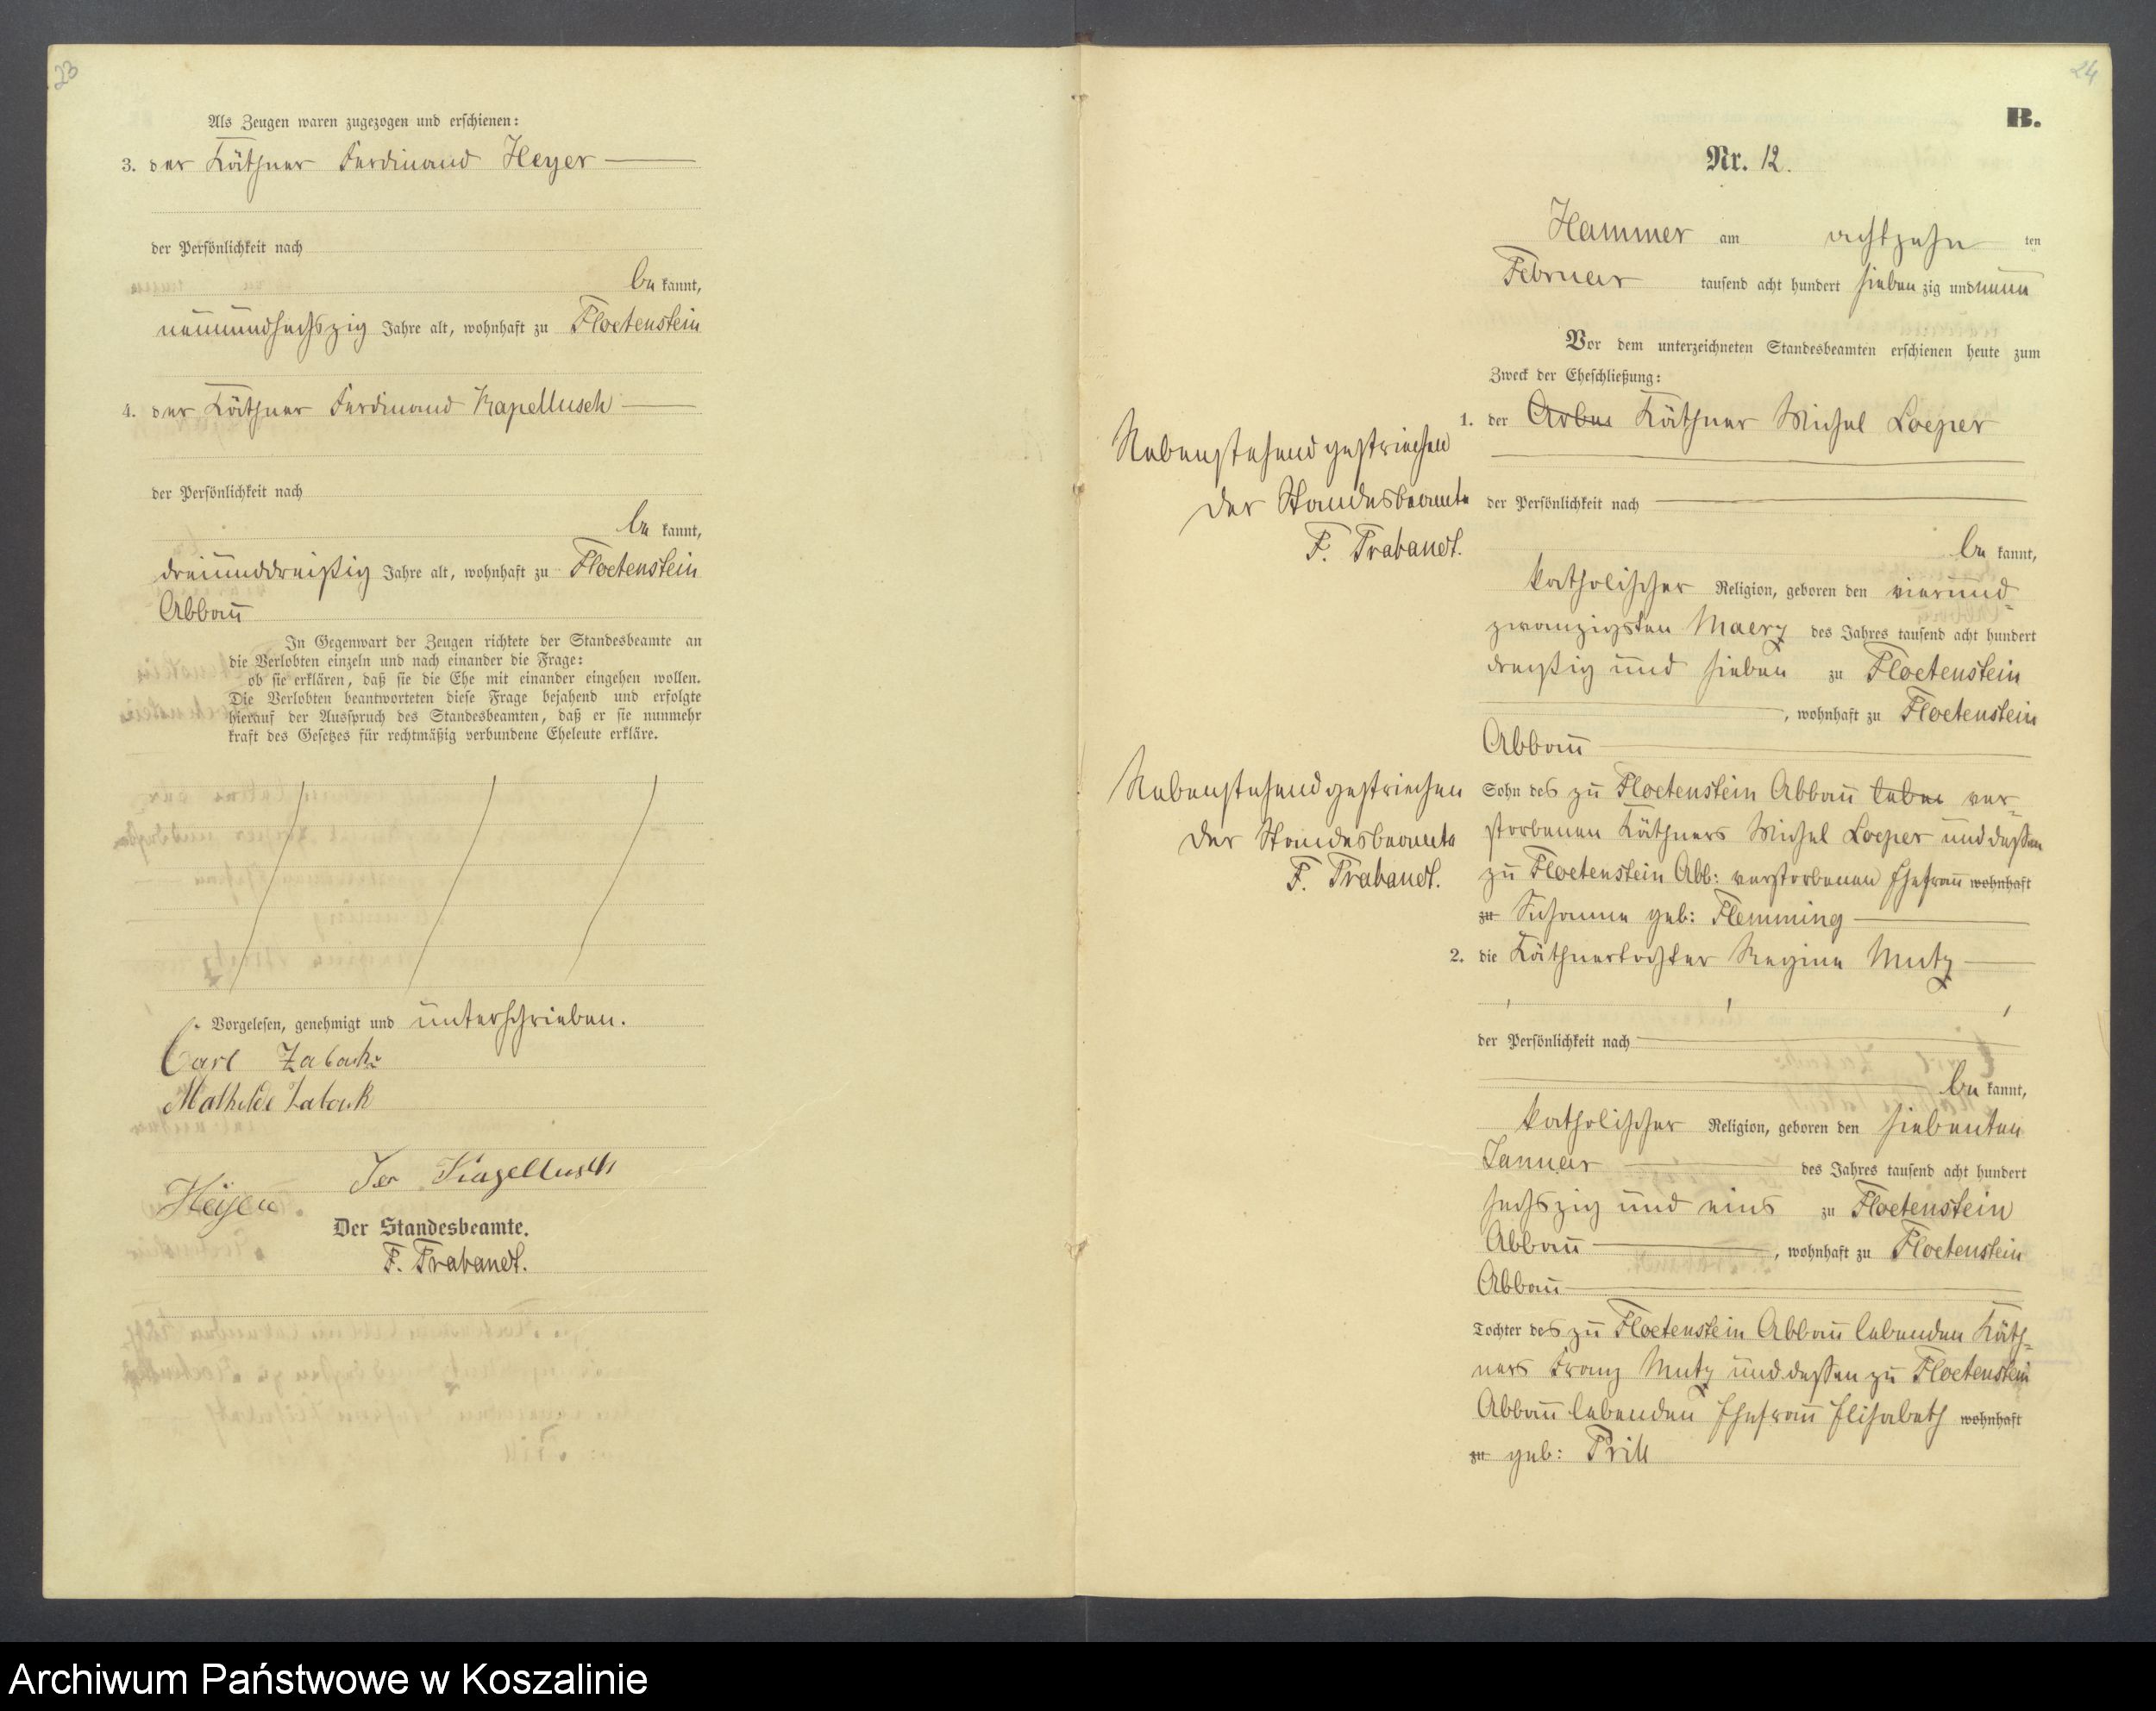 23
Als Zeugen waren zugezogen und erschienen:
3. der Käthner Ferdinand Heyer
der Persönlichkeit nach
be kannt,
neunundsechszig Jahre alt, wohnhaft zu Floetenstein
4. der Käthner Ferdinand Kapellusch
der Persönlichkeit nach
be kannt,
dreiunddreißig Jahre alt, wohnhaft zu Floetenstein
Abbau
In Gegenwart der Zeugen richtete der Standesbeamte an
die Verlobten einzeln und nach einander die Frage:
ob sie erklären, daß sie die Ehe mit einander eingehen wollen.
Die Verlobten beantworteten diese Frage bejahend und erfolgte
hierauf der Ausspruch des Standesbeamten, daß er sie nunmehr
kraft des Gesetzes für rechtmäßig verbundene Eheleute erkläre.
Vorgelesen, genehmigt und unterschrieben.
Carl
Mathilde
Kapellusch
Der Standesbeamte.
F. Trabandt.
24
B.
Nr. 12.
Hammer am achtzehn ten
Februar tausend acht hundert sieben zig und neun
Vor dem unterzeichneten Standesbeamten erschienen heute zum
Zweck der Eheschließung:
1. der Arbei Käthner Michel Loeper
Nebenstehend gestrichen
Der Standesbeamte
F. Trabandt.
der Persönlichkeit nach
be kannt,
katholischer Religion, geboren den vierund-
zwanzigsten Maerz des Jahres tausend acht hundert
dreißig und sieben zu Floetenstein
, wohnhaft zu Floetenstein
Abbau
Nebenstehend gestrichen
Der Standesbeamte
F. Trabandt.
Sohn des zu Floetenstein Abbau leben ver-
storbenen Käthners Michel Loeper und dessen
zu Floetenstein Abb: verstorbenen Ehefrau wohnhaft
zu Susanne geb: Flemming
2. die Käthnertochter Regine Mutz
der Persönlichkeit nach
be kannt,
katholischer Religion, geboren den siebenten
Januar des Jahres tausend acht hundert
sechszig und eins zu Floetenstein
Abbau , wohnhaft zu Floetenstein
Abbau
Tochter des zu Floetenstein Abbau lebenden Käth-
ners Franz Mutz und dessen zu Floetenstein
Abbau lebenden Ehefrau Elisabeth wohnhaft
zu geb: Prill
Archiwum Państwowe w Koszalinie